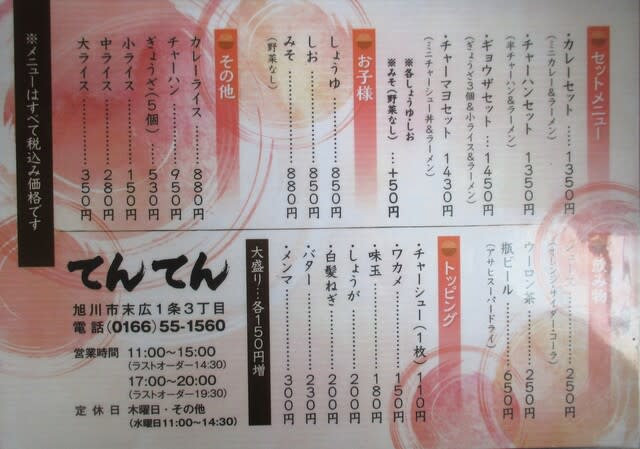 セットメニュー
・カレーセット……1350円
(ミニカレー＆ラーメン)
・チャーハンセット 1350円
(半チャーハン＆ラーメン)
・ギョウザセット…1450円
(ぎょうざ3個＆小ライス＆ラーメン)
・チャーマヨセット 1430円
(ミニチャーシュー丼＆ラーメン)
※各しょうゆ・しお
※みそ(野菜なし)…+50円
お子様
しょうゆ……………850円
しお…………………850円
みそ…………………880円
(野菜なし)
その他
カレーライス………880円
チャーハン…………950円
ぎょうざ(5個)……530円
小ライス……………150円
中ライス……………280円
大ライス……………350円
※メニューはすべて税込み価格です
飲み物
ジュース……………250円
ウーロン茶…………250円
瓶ビール……………650円
(アサヒスーパードライ)
トッピング
・チャーシュー(1枚) 110円
・ワカメ……………150円
・味玉………………180円
・しょうが…………200円
・白髪ねぎ…………200円
・バター……………230円
・メンマ……………300円
大盛り…各150円増
てんてん
旭川市末広1条3丁目
電話(0166)55-1560
営業時間 11:00〜15:00
(ラストオーダー14:30)
17:00〜20:00
(ラストオーダー19:30)
定休日 木曜日・その他
(水曜日11:00〜14:30)